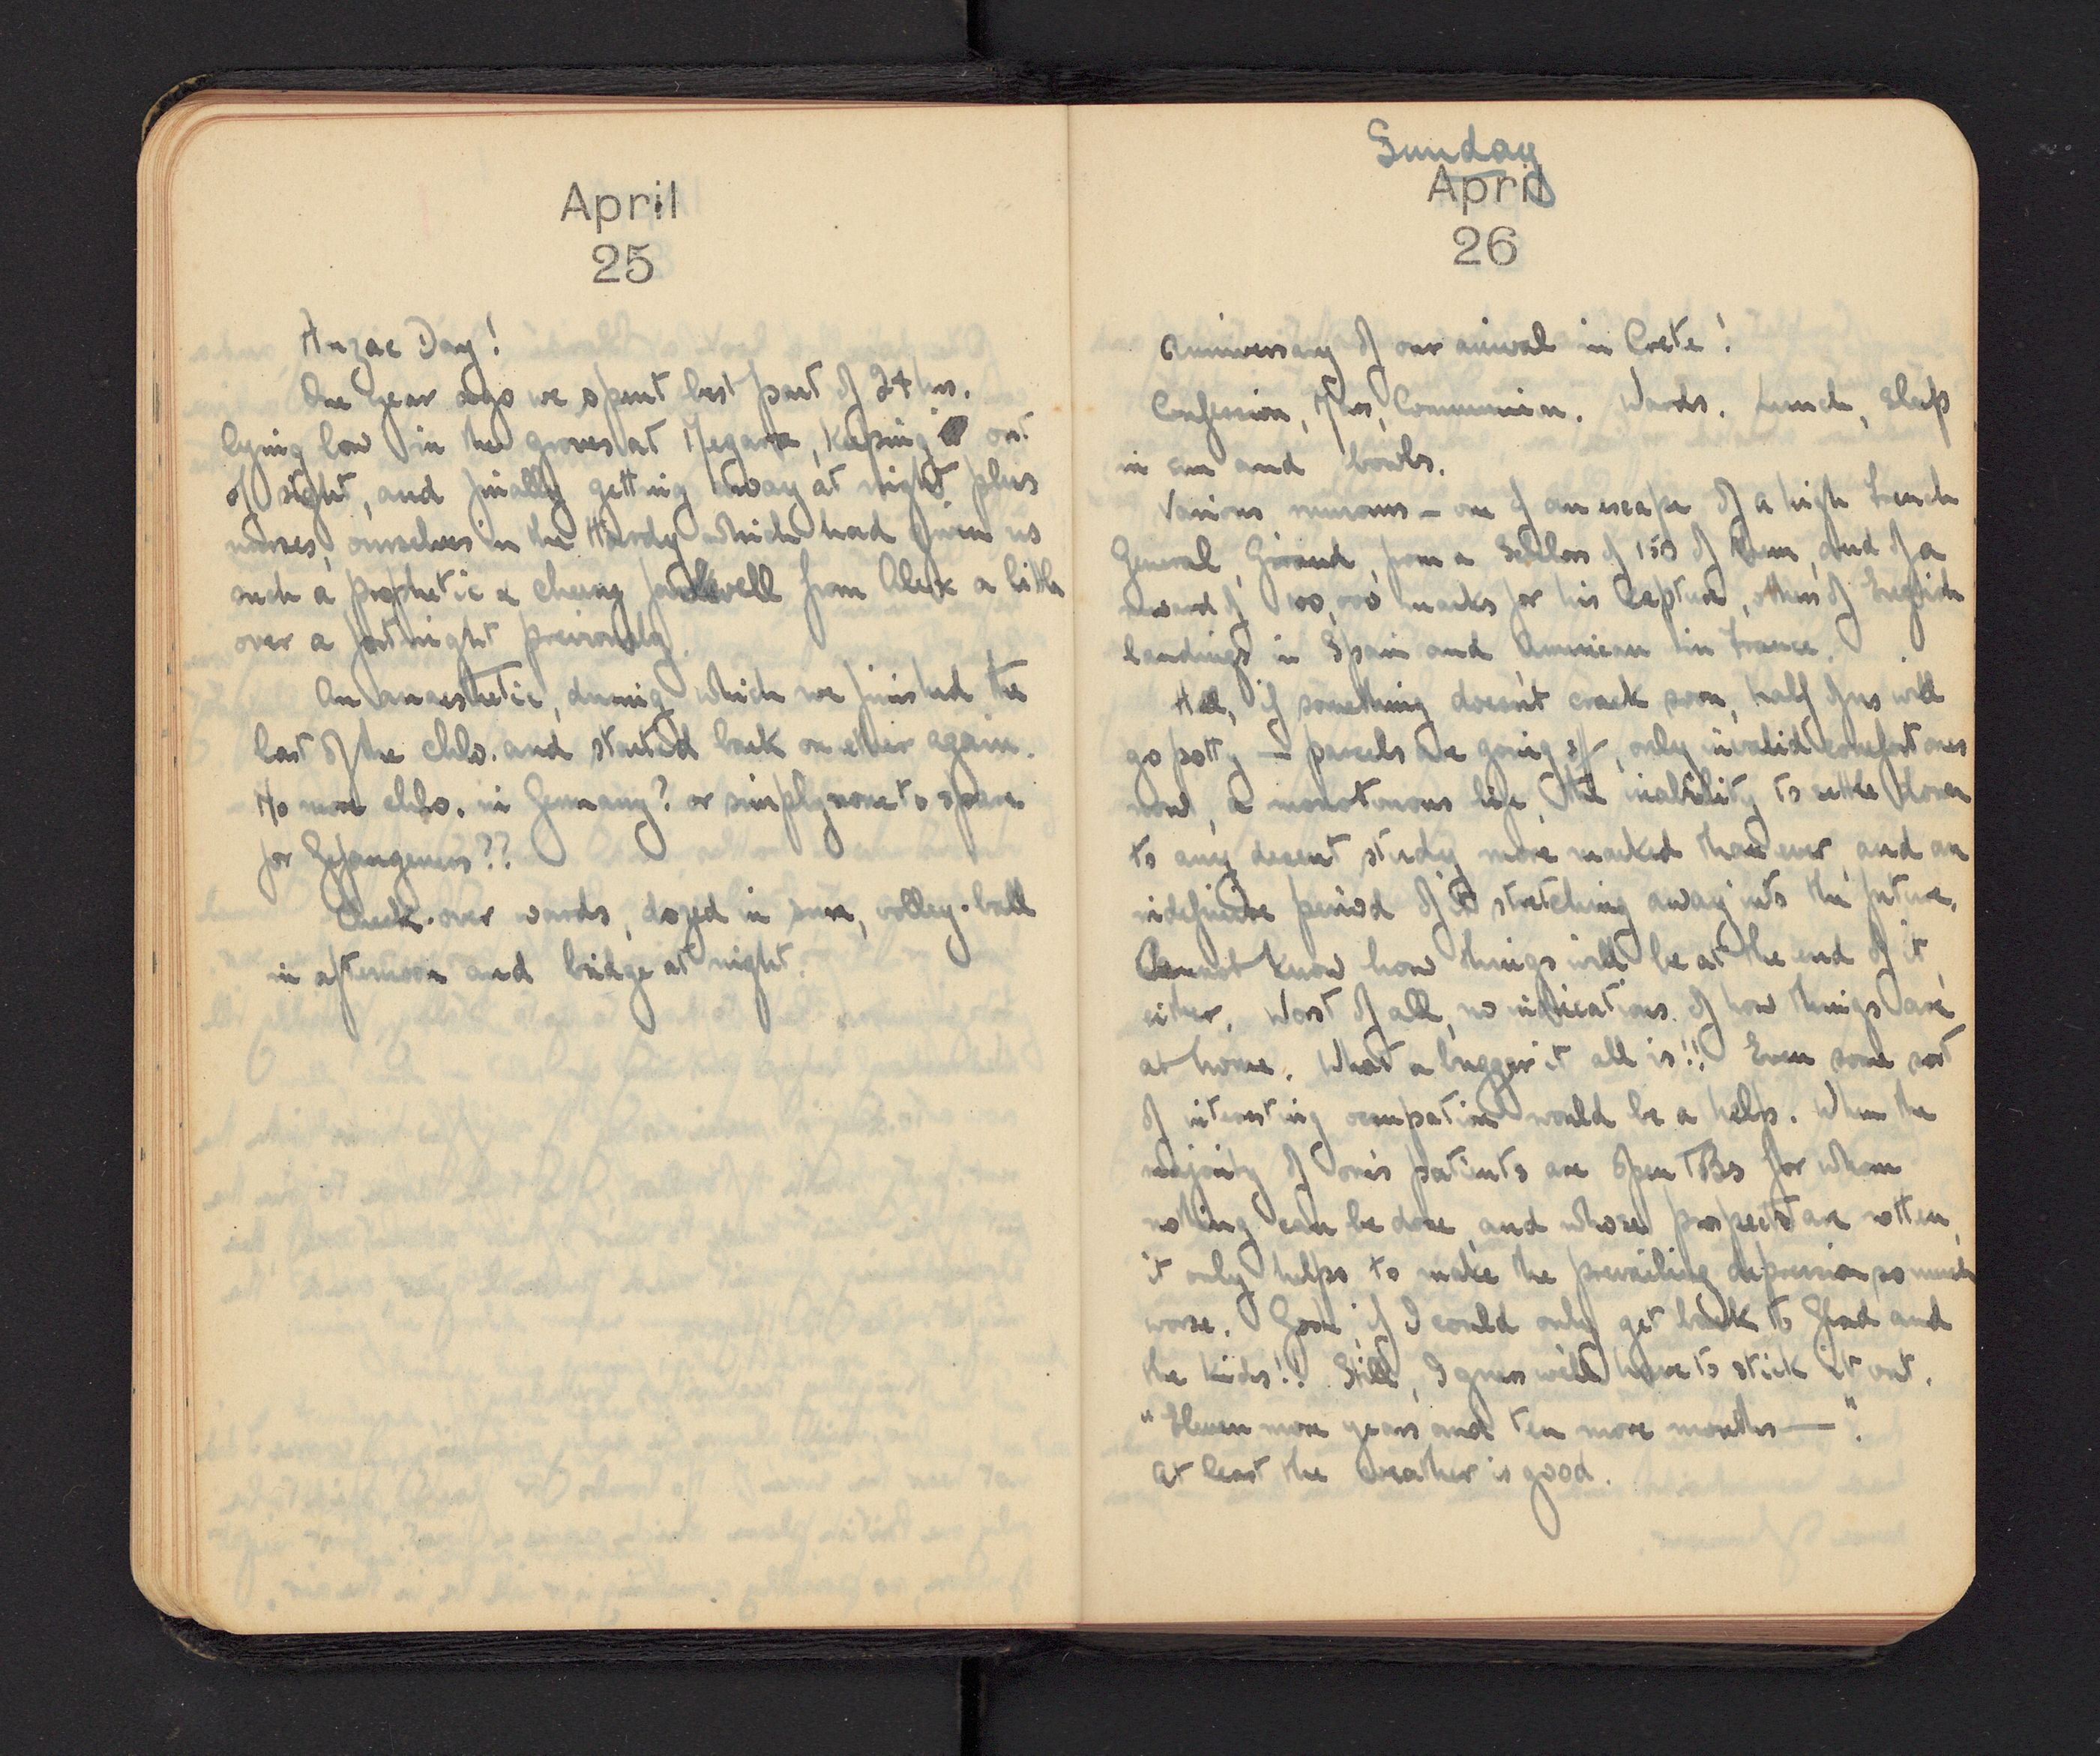 April
25
Anzac Day!
One year ago we spent best part of 24 hrs.
lying low in the groves at Megara, keeping out
of sight, and finally getting away at night plus
nurses, ourselves in the Hardy which had given us
such a prophetic & cheery farewell from Alex a little
over a fortnight previously.
An anaesthetic, during which we finished the
last of the chlo. and started back on ether again.
No more chlo. in Germany? or simply none to spare
for Gefangeners??
Check-over wards, dozed in sun, volley-ball
in afternoon and bridge at night.
Sunday
April
26
Anniversary of our arrival in Crete!
Confession, Mass, Communion. Wards. Lunch, sleep
in sun and bowls.
Various rumours – one of an escape of a high French
General, Giraud, from a Schloss of 150 of them, and of a
reward of 100,000 marks for his capture, others of English
landings in Spain and American in France.
Hell, if something doesn't crack soon, half of us will
go potty – parcels are going off, only invalid comfort ones
now, a monotonous life, the inability to settle down
to any decent study more marked than ever, and an
indefinite period of it stretching away into the future.
Cannot know how things will be at the end of it,
either. Worst of all, no indications of how things are
at home. What a bugger it all is!! Even some sort
of interesting occupation would be a help. When the
majority of one's patients are open TBs for whom
nothing can be done, and whose prospects are rotten,
it only helps to make the prevailing depression so much
worse. Gosh, if I could only get back to and
the kids!! Still, I guess we'll have to stick it out.
"Eleven more years and ten more months —".
At least the weather is good.